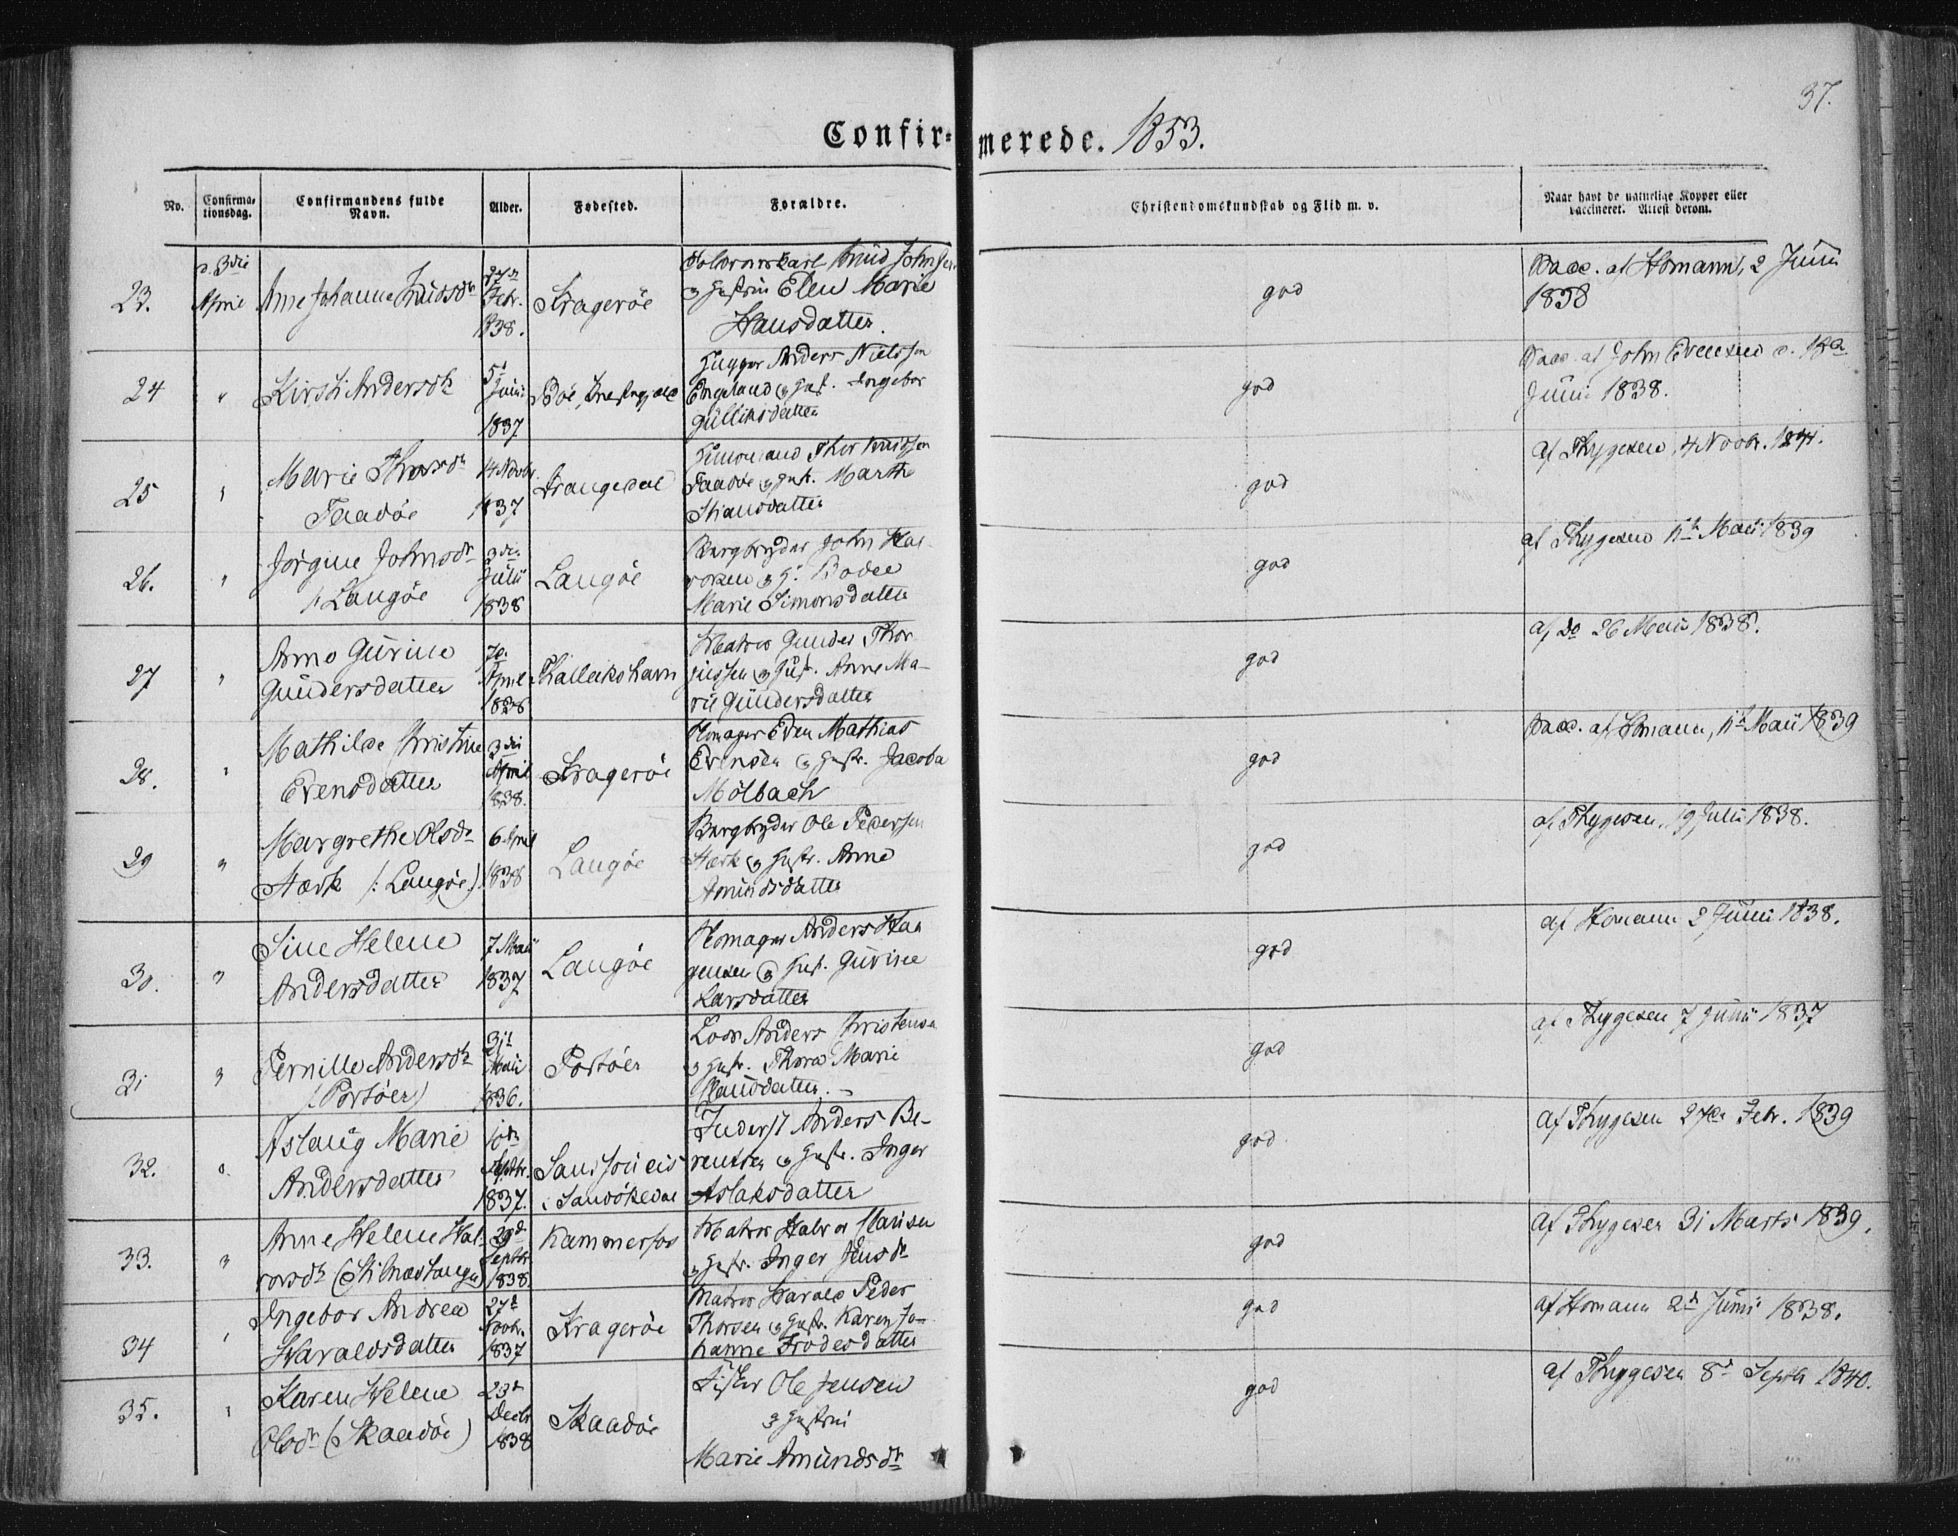 37.
Confir=merede. 1853.
No.
Confirma-
tionsdag.
Confirmandens fulde
Navn.
Alder.
Fødested.
Forældre.
Christendomskundskab og Flid m. v.
Naar havt de naturlige Kopper eller
vaccineret. Attest derom.
23.
d. 3die
April
Ane Johanne Knudsdr
27de
Febr.
1838.
Kragerøe
Knud Johnsen
og Hustrue Elen Marie
Hansdatter.
god
Vacc. af Homann, 2 Junii
1838
24
"
Kirsti Andersdr
5t
Junii
1837
Bøe Præstegjæld
Anders Nielsen
Engeland og Hust. Ingebor
Gulliksdatter
god
Vacc. af John Evensen d. 18de
Junii 1838.
25
"
Marie Thorsdr
Taadøe
14 Novbr
1837
Drangedal
Thor Knudsen
Taadøe og Hust. Marthe
Stiansdatter
god
af Thygesen 4 Novbr. 1841.
26.
"
Jørgine Johnsdr
/: Langøe
3die
Julii
1838
Langøe
Bergbryder John Hal-
vorsen og H. Bodee
Marie Simonsdatter
god
af Thygesen 11te Maii 1839
27
"
Anne Gurine
Gundersdatter
7de
April
1838
Kalleckshavn
Matros Gunder Thor
gjussen og Hust. Anne Ma-
rie Gundersdatter
god
af do 26 Maii 1838.
28.
"
Mathilde Christine
Evensdatter
3die
April
1838.
Kragerøe
Even Mathias
Evensen og Hustr. Jacoba
Mølbach
god
Vacc. af Homann, 11te Maii 1839
29
"
Margrethe Olsdr
Stærk (: Langøe)
6 April
1838
Langøe
Bergbryder Ole Pedersen
Stærk og Hustr. Anne
Amundsdatter
god
af Thygesen, 19 Julii 1838.
30.
"
Sine Helene
Andersdatter
7 Maii
1837
Langøe
Anders Haa
gensen og Hust. Gurine
Larsdatter
god
af Homann 2 Junii 1838.
31
"
Pernille Andersdr
(: Portøer)
31t
Maii
1836.
Portøer
Lods Anders Christensen
og Hustr. Thora Marie
Hansdatter.
god
af Thygesen 7 Junii 1837
32.
"
Aslaug Marie
Andersdatter
10de
Septbr.
1837.
i Sandøkedal
Inderst Anders Be-
rentsen og Hustr. Inger
Aslaksdatter
god
af Thygesen 27de Febr. 1839
33.
"
Anne Helene Hal-
vorsdr (Stilnestangen)
29de
Septbr
1838.
Kammerfos
Matros Halvor Hansen
og Hustr. Inger Jensdr
god
af Thygesen 31 Marts 1839.
34
"
Ingebor Andrea
Haraldsdatter
27d
Novbr.
1837
Kragerøe
Matros Harald Peder
Thorsen og Hustr. Karen Jo-
hanne Frodesdatter
god
af Homann 2d Junii 1838.
35.
"
Karen Helene
Olsdr (: Skaadøe)
23de
Decbr
1838
Skaadøe
Fisker Ole Jensen
og Hustrue
Marie Amundsdr
god
af Thygesen 8d Septbr 1840.